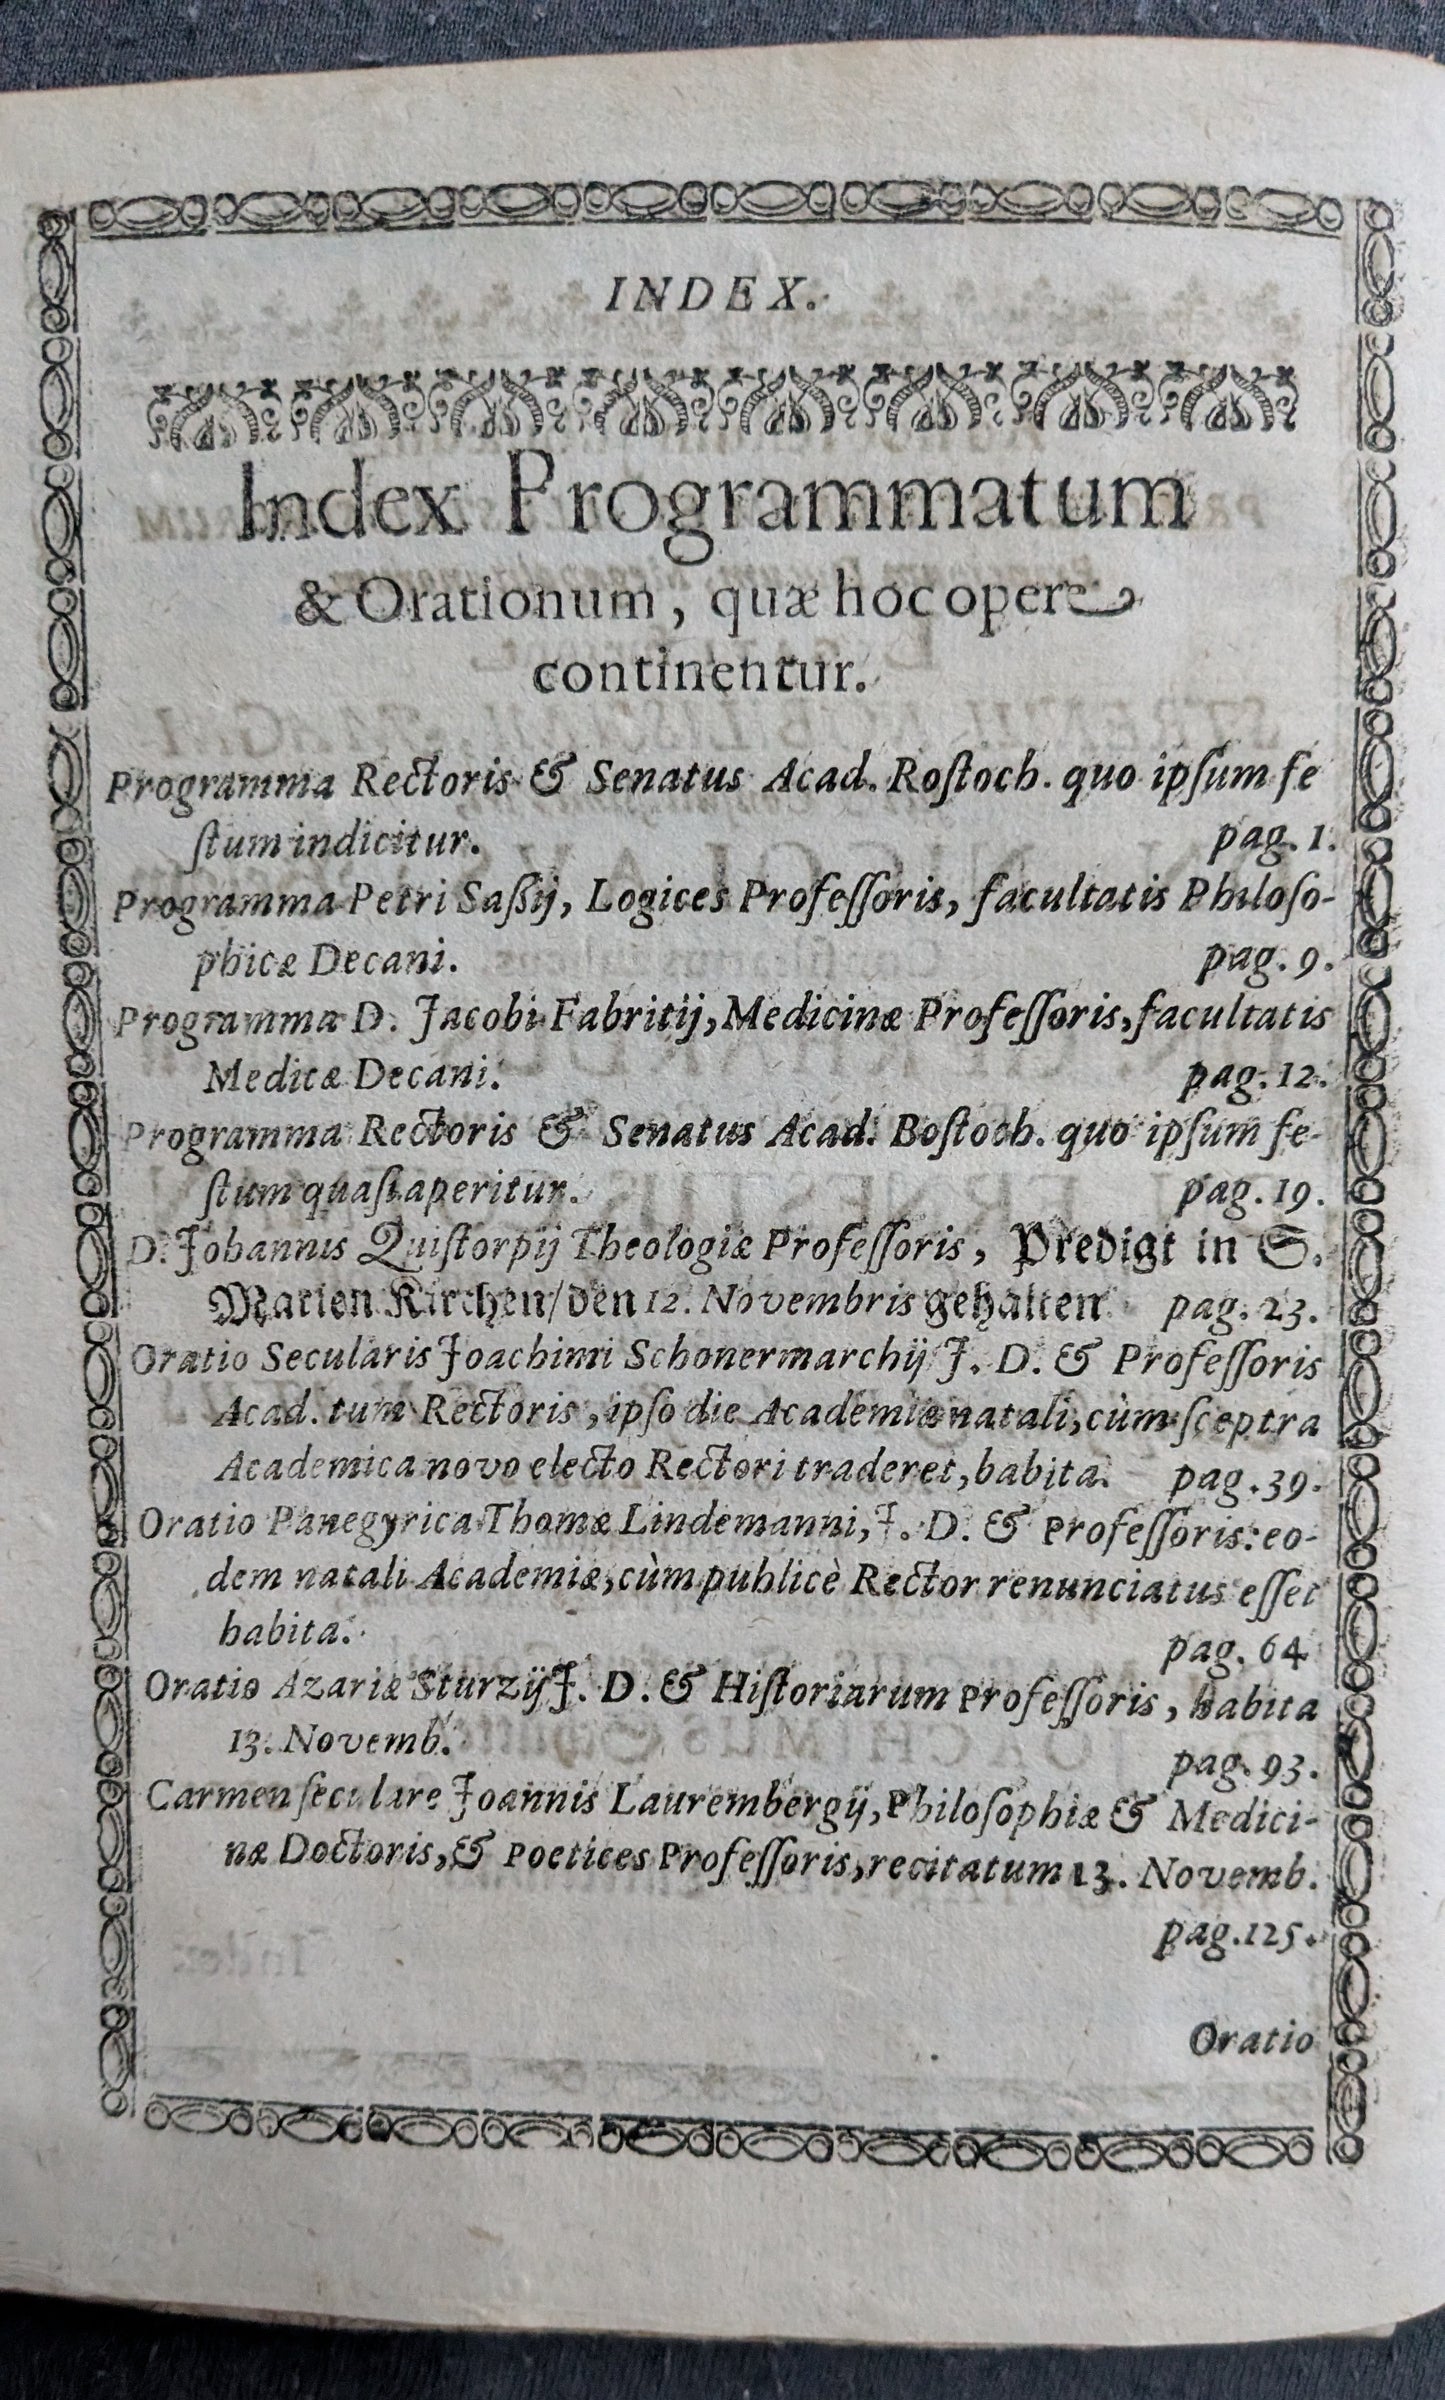 INDEX.
Index Programmatum
& Orationum, quæ hoc opere
continentur.
Programma Rectoris & Senatus Acad. Roſtoch. quo ipſum fe
ſtum indicitur. pag. 1.
Programma Petri Saßij, Logices Profeſſoris, facultatis Philoſo-
phicæ Decani. pag. 9.
Programma D. Jacobi Fabritij, Medicinæ Profeſſoris, facultatis
Medicæ Decani. pag. 12.
Programma Rectoris & Senatus Acad. Boſtoch. quo ipſum fe-
ſtum quaſi aperitur. pag. 19.
D. Johannis Quiſtorpij Theologiæ Profeſſoris, Predigt in S.
Marien Kirchen/ den 12. Novembris gehalten pag. 23.
Oratio Secularis Joachimi Schonermarchij J. D. & Profeſſoris
Acad. tum Rectoris, ipſo die Academiæ natali, cùm ſceptra
Academica novo electo Rectori traderet, habita. pag. 39.
Oratio Panegyrica Thomæ Lindemanni, J. D. & Profeſſoris: eo-
dem natali Academiæ, cùm publicè Rector renunciatus eſſet
habita. pag. 64
Oratio Azariæ Sturzij J. D. & Hiſtoriarum Profeſſoris, habita
13. Novemb. pag. 93.
Carmen ſeculare Joannis Laurembergij, Philoſophiæ & Medici-
næ Doctoris, & Poetices Profeſſoris, recitatum 13. Novemb.
pag. 125.
Oratio